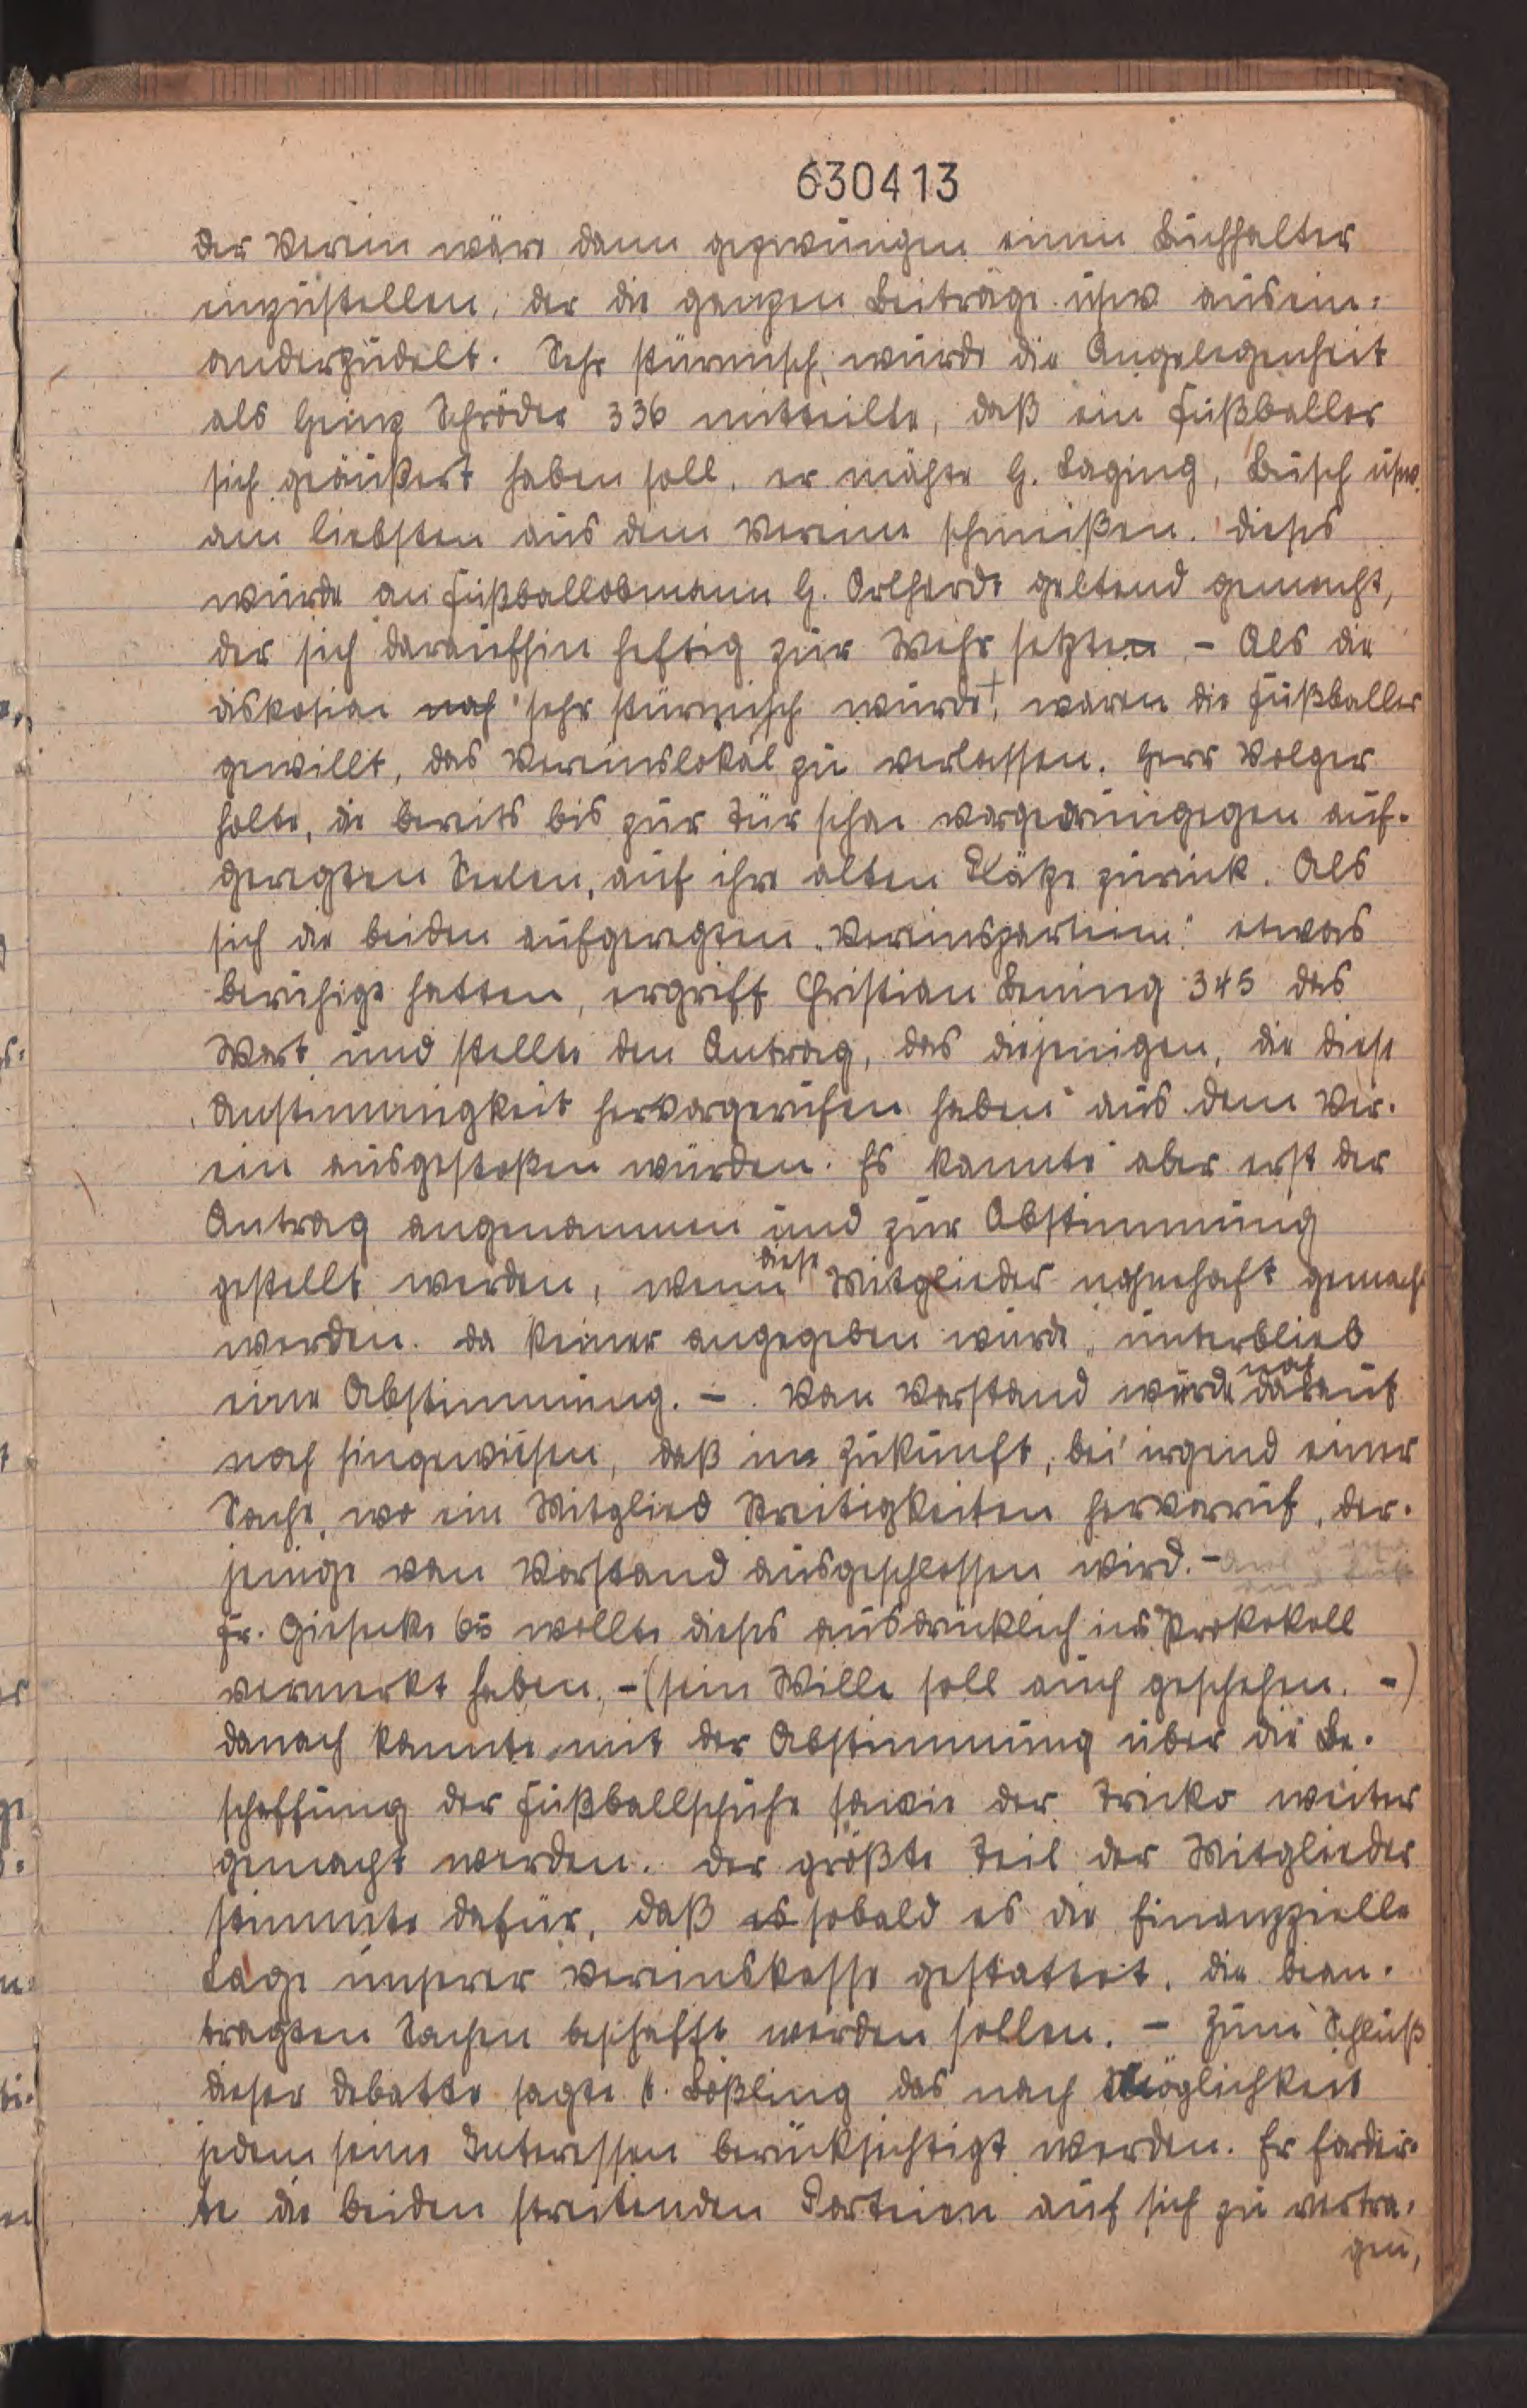 630413
der Verein wäre dann gezwungen einen Buchhalter
einzustellen, der die ganzen Beiträge usw ausein=
anderzudelt. Sehr stürmisch, wurde die Angelegenheit
als Heinz Schröder 336 mitteilte, daß ein Fußballer
sich geäußert haben soll, er möchte H. Laging, Busch usw.
am liebsten aus dem Vereine schmeißen. Dieses
wurde an Fußballobmann H. Ortherde geltend gemacht,
der sich daraufhin heftig zur Wehr setzten. - Als die
diskosion noch sehr stürmisch wurde, waren die Fußballer
gewillt, das Vereinslokal zu verlassen. Herr Volger
holte, die bereits bis zur Tür schon vorgedrungegen auf-
geregten Seelen, auf ihre alten Plätze zurück. Als
sich die beiden aufgeregten "Vereinsparteien" etwas
beruhige hatten, ergriff Christian Bening 345 das
Wort und stellte den Antrag, das diejenigen, die diese
Anstimmigkeit hervorgerufen haben aus dem Ver-
ein ausgestoßen würden. Es konnte aber erst der
Antrag angenommen und zur Abstimmung
gestellt werden, wenn diese Mitglieder nahmhaft gemach
werden. da keiner angegeben wurde, unterblieb
eine Abstimmung. - Von Vorstand wurde noch darauf
noch hingewiesen, daß in Zukunft, bei irgend einer
Sache, wo ein Mitglied Streitigkeiten hervorruf, der-
jenige von Vorstand ausgeschlossen wird. -
Fr. Gieseke wollte dieses ausdrücklich ins Prokokoll
vermerkt haben. - (sein Wille soll auch geschehen. -)
danach konnte mit der Abstimmung über die Be-
schaffung der Fußballschuhe sowie der Triko weiter
gemacht werden. der größte Teil der Mitglieder
stimmte dafür, daß es sobald es die finanzzielle
Lage unserer Vereinskasse gestattet, die bean-
tragten Sachen beschafft werden sollen. - Zum Schluß
dieser debatte sagte k. Bößling das nach Möglichkeit
jedem seine Interessen berücksichtigt werden. Er forder-
te die beiden streitenden Parteien auf sich zu vertra-
gen,